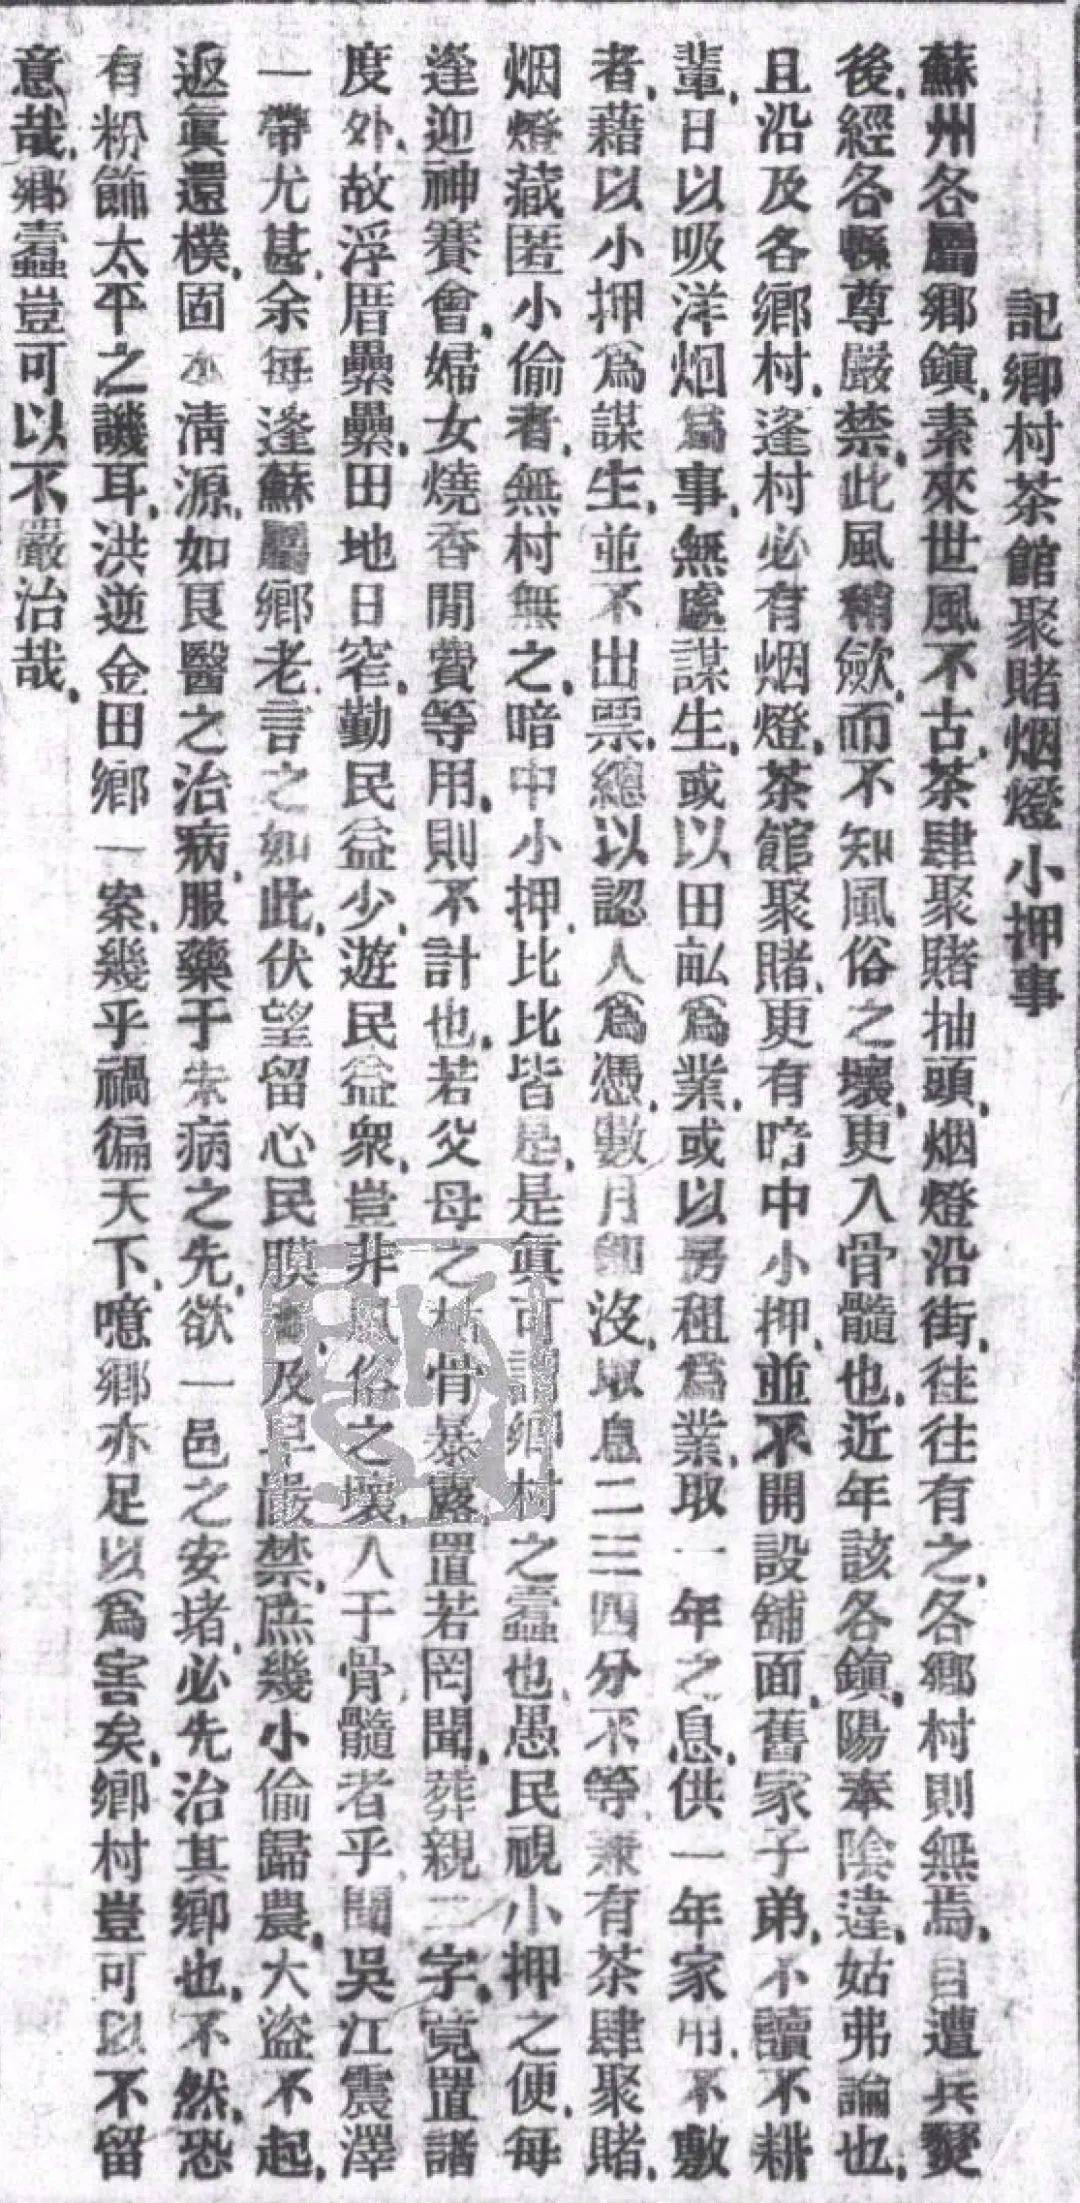 記鄉村茶館聚賭烟燈小押事
蘇州各屬鄉鎮、素來世風不古、茶肆聚賭抽頭、烟燈沿街、往往有之、各鄉村則無焉、自遭兵燹
後、經各縣尊嚴禁、此風稍歛、而不知風俗之壞、更入骨髓也、近年該各鎮、陽奉陰違、姑弗論也、
且沿及各鄉村、逢村必有烟燈、茶館聚賭、更有暗中小押、並不開設舖面、舊家子弟、不讀不耕
輩、日以吸洋烟爲事、無處謀生、或以田畝爲業、或以房租爲業、取一年之息、供一年家用、不敷
者、藉以小押爲謀生、並不出票、總以認人爲憑、數月卽沒、取息二三四分不等、兼有茶肆聚賭、
烟燈藏匿小偷者、無村無之、暗中小押、比比皆是、是眞可謂鄉村之蠹也、愚民視小押之便、每
逢迎神賽會、婦女燒香閒費等用、則不計也、若父母之棺骨暴露、置若罔聞、葬親二字、竟置諸
度外、故浮厝纍纍、田地日窄、勤民益少、遊民益衆、豈非風俗之壞、入于骨髓者乎、聞吳江震澤
一帶尤甚、余每逢蘇屬鄉老、言之如此、伏望留心民瘼者、及早嚴禁、庶幾小偷歸農、大盜不起、
返眞還樸、固本清源、如良醫之治病、服藥于未病之先、欲一邑之安堵、必先治其鄉也、不然、恐
有粉飾太平之譏耳、洪逆金田鄉一案、幾乎禍徧天下、噫鄉亦足以爲害矣、鄉村豈可以不留
意哉、鄉蠹豈可以不嚴治哉、